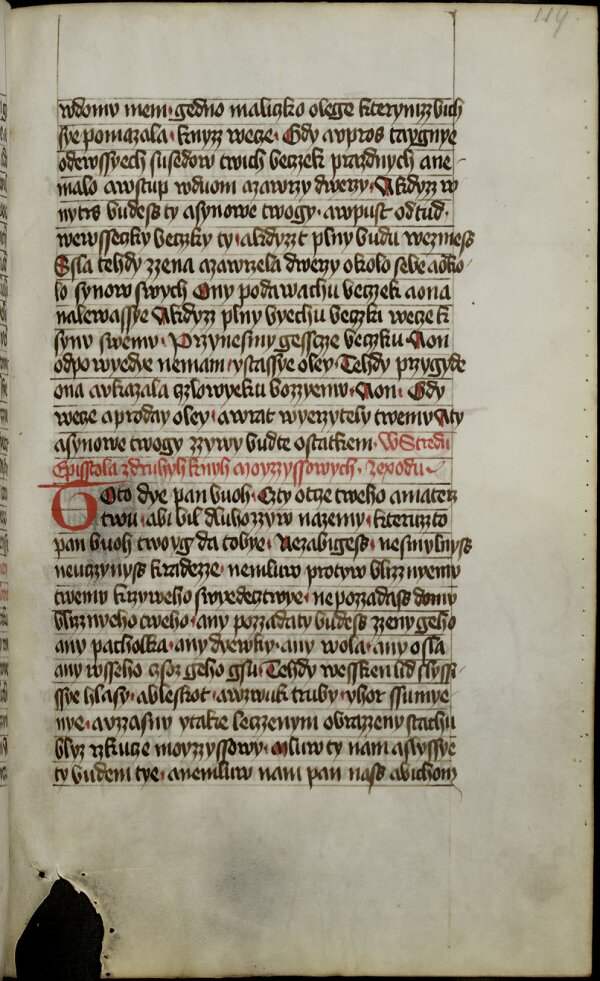 119.
wdomu mem · gedno maliczko olege kterymzzbich
sye pomazala · knyzz wecze · Gdy awpros tagnye
odewssyech susedow twich beczek prazdnych ane-
malo awstup wduom azawrzy dwerzy · Akdyzz w
nytrs budess ty asynowe twogy · awpust odtud ·
wewsseczky beczky ty · akdyzzt plny budu wezmess
Ssla tehdy zzena azawrzela dwerzy okolo sebe aoko-
lo synow swych Ony podawachu beczek aona
nalewassye Akdyzz plny byechu beczky wecze k
synu swemu · Przynesmy gessczze beczku · Aon
odpowyedye nemam · ystassye oley · Tehdy przygide
ona aukazala czlowyeku bozzyemu · Aon · Gdy
wecze aproday oley · awrat wyerzytely twemu Aty
asynowe twogy zzywy budte ostatkem · wStredu
Episstola zdruhyh knyh Moyzzyssowych · Zepodu
Toto dye pan buoh · Czty otcze tweho amaterz
twu · abi bil dluhozzyw nazemy · kteruzzto
pan buoh twoyg da tobye · Nezabigess · nesmylnyss
neuczynyss kradezze · nemluw protyw blizznyemu
twemu krzyweho swyedecztwye · ne pozzadass domu
blizznyeho tweho · any pozzadaty budess zzeny geho
any pacholka · any dyewky · any wola · any osla
any wsseho czoz geho gsu · Tehdy wessken lid slyssi-
ssye hlasy · ableskot · azwuk truby · yhor ssumye-
nye · auzzasny ytakie leczzenym obrazzeny stachu
blyz rzkucze moyzzyssowy · Mluw ty nam aslyssye
ty budem tye · anemluw nam pan nass abichom